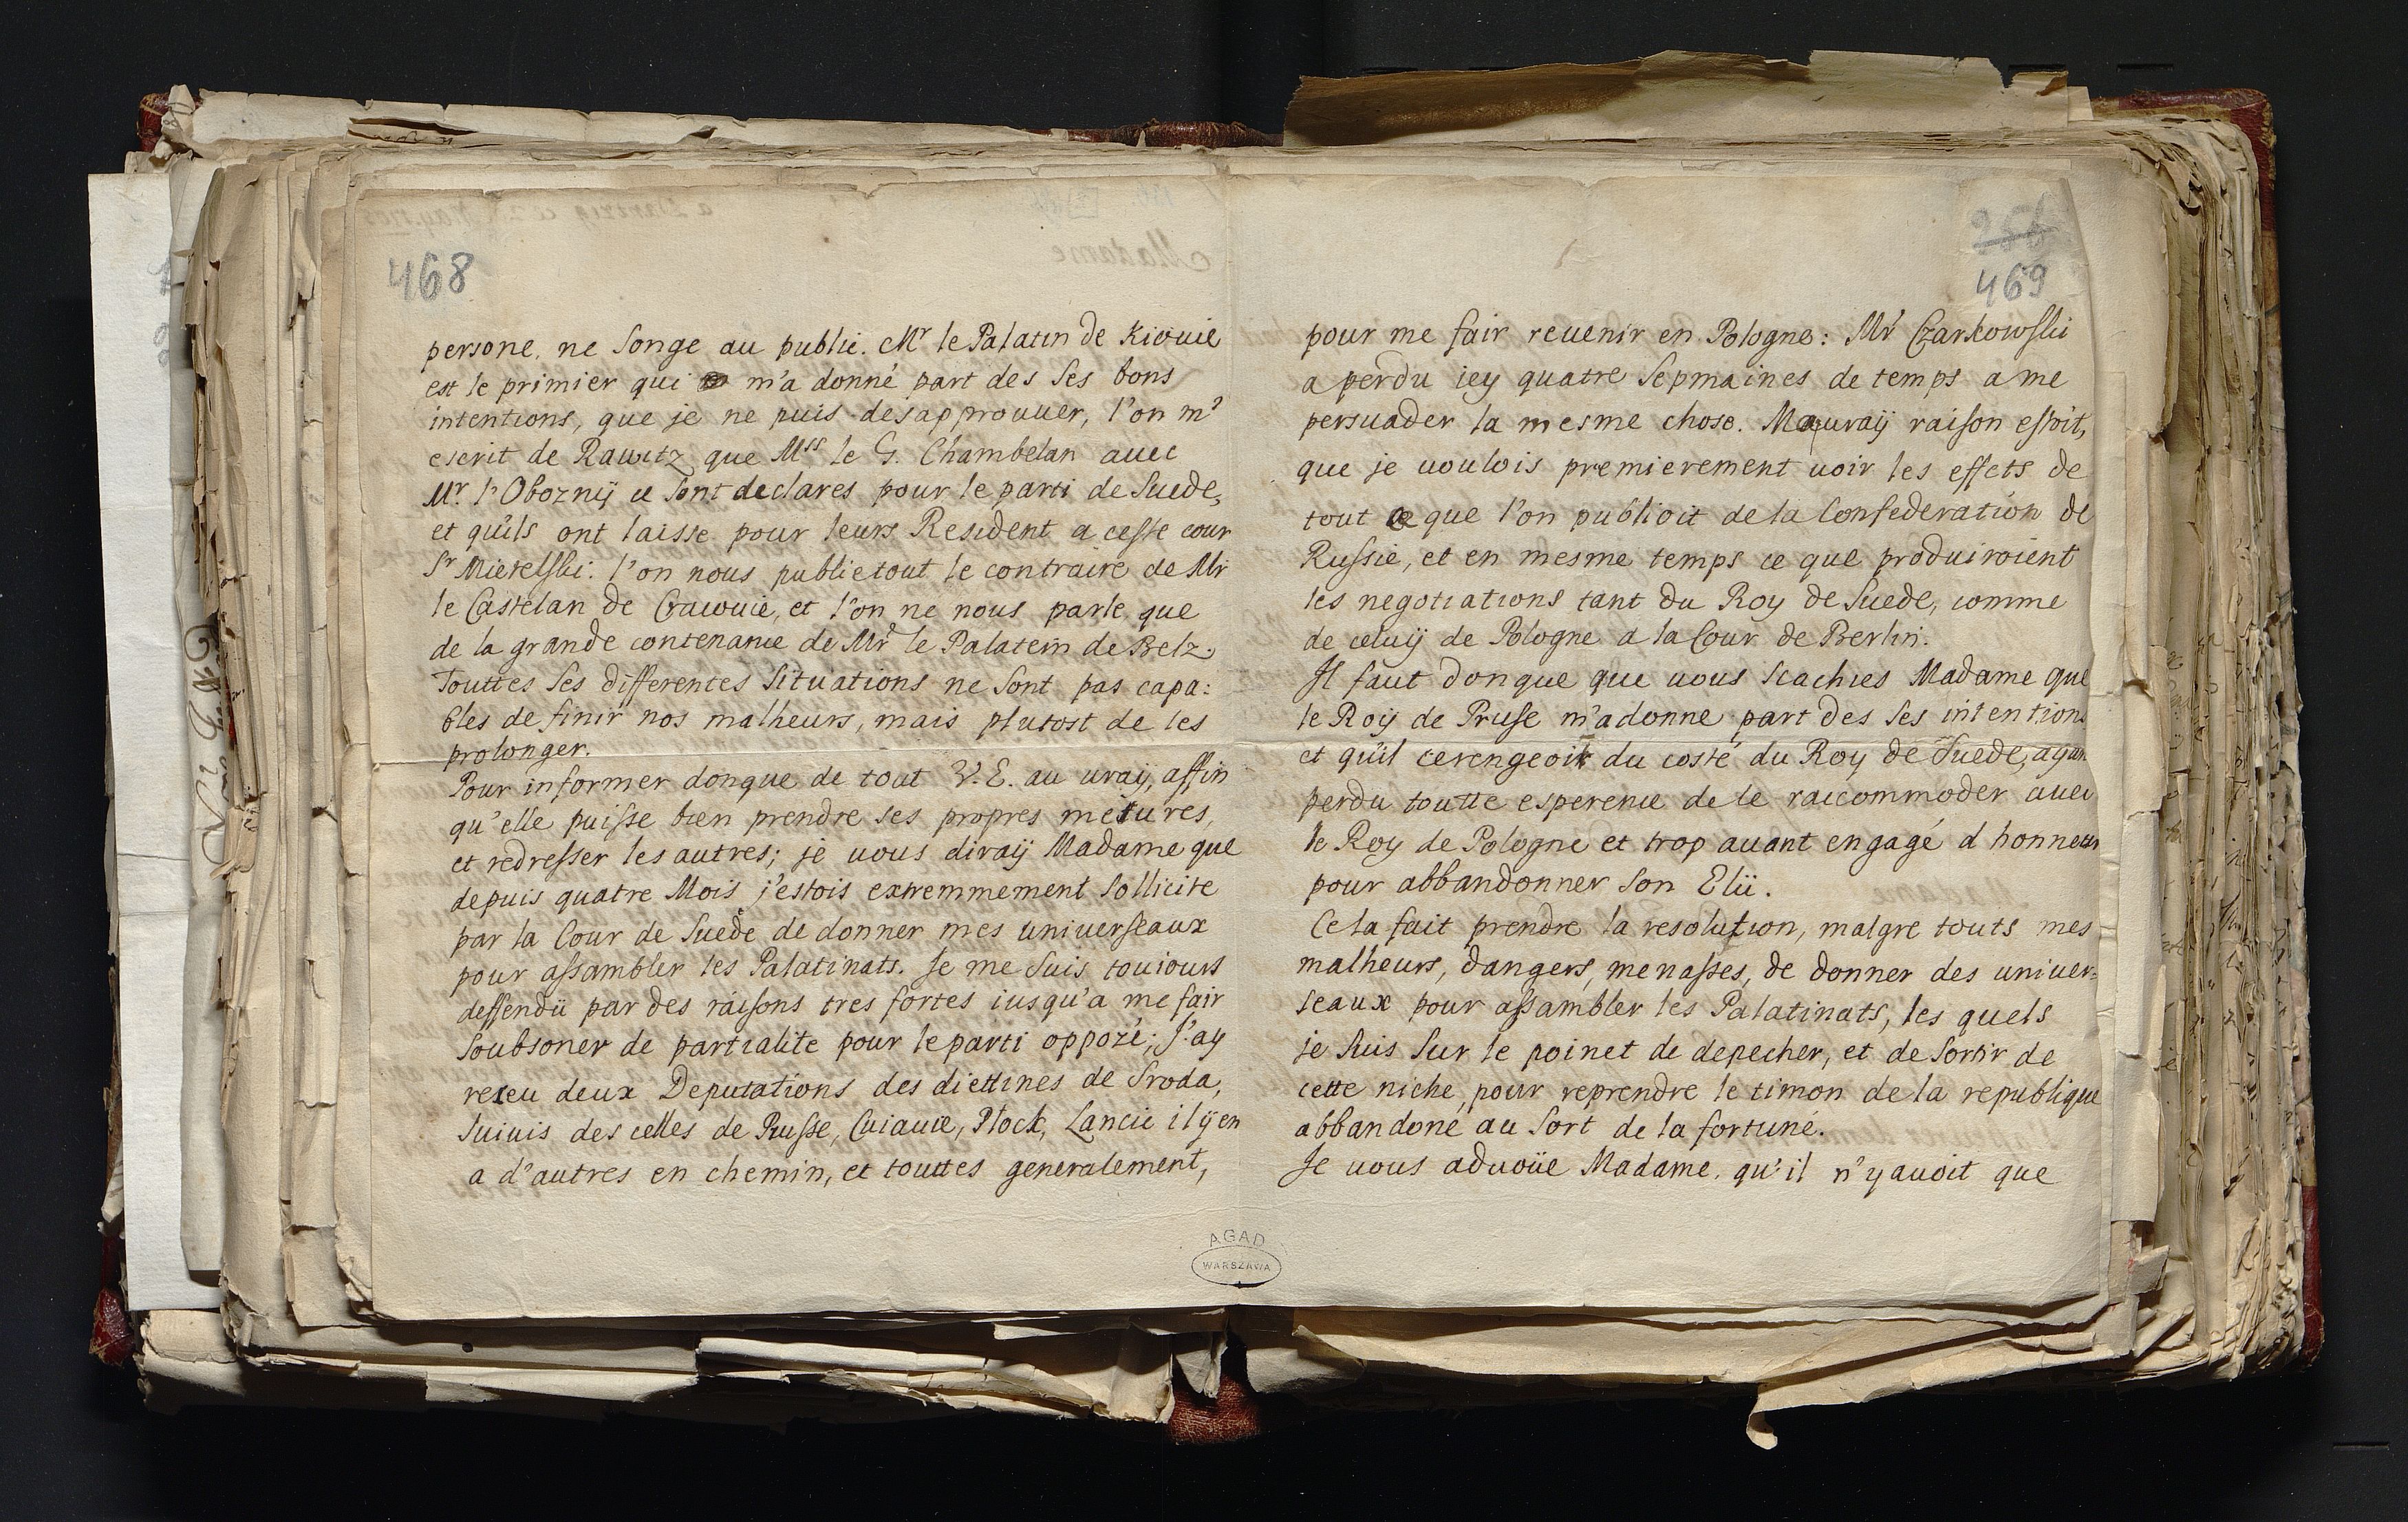 468
persone. ne songe au public. Mr le Palatin de Kiovie
est le primier qui m'a donné part des ses bons
intentions, que je ne puis desapprouver, l'on m'
escrit de Rawitz que Mss le G. Chambelan avec
Mr. l'Oboznÿ ce sont declares pour le parti de Suede,
et qu'ils ont laisse pour leurs Resident a cesse cour
Sr Mielelski. l'on nous publie tout le contraire de Mr
le Castelan de Cracovie, et l'on ne nous parle que
de la grande contenance de Mr le Palatein de Belz.
Touttes ses differentes situations ne sont pas capa:
bles de finir nos malheurs, mais plutost de les
prolonger.
Pour informer donque de tout V. E. au vraÿ, affin
qu'elle puisse bien prendre ses propres mesures,
et redresser les autres; je vous diraÿ Madame que
depuis quatre Mois j'estois extremmement sollicite
par la Cour de Suede de donner mes universeaux
pour assambler les Palatinats. Je me suis toujours
deffendü par des raisons tres fortes jusqu'a me fair
soubsoner de partialite pour le parti oppozé; J'ay
receu deux Deputations des diettines de Sroda,
suivis des celles de Prusse, Cuiavie, Plock, Lancic il ÿ en
a d'autres en chemin, et touttes generalement,
469
pour me fair revenir en Pologne: Mr Czarkowski
a perdu icy quatre sepmaines de temps a me
persuader la mesme chose. Ma vraÿ raison estoit,
que je voulois premierement voir les effets de
tout ce que l'on publioit de la Confederation de
Russie, et en mesme temps ce que produiroient
les negotiations tant du Roy de Suede, comme
de celuÿ de Pologne a la Cour de Berlin.
Il faut donque que vous scachies Madame que
le Roÿ de Pruse m'a donne part des ses intentions
et qu'il cerengeoit du costé du Roy de Suede, ayan
perdu toutte esperence de le raccommoder avec
le Roy de Pologne et trop avant engagé d honneur
pour abbandonner son Elü.
Cela fait prendre la resolution, malgre touts mes
malheurs, dangers, menasses, de donner des univer=
seaux pour assambler les Palatinats, les quels
je suis sur le poinct de depecher, et de sortir de
cette niche, pour reprendre le timon de la republique
abbandoné au sort de la fortuné.
Je vous advoüe Madame. qu'il n'y avoit que
AGAD
WARSZAWA